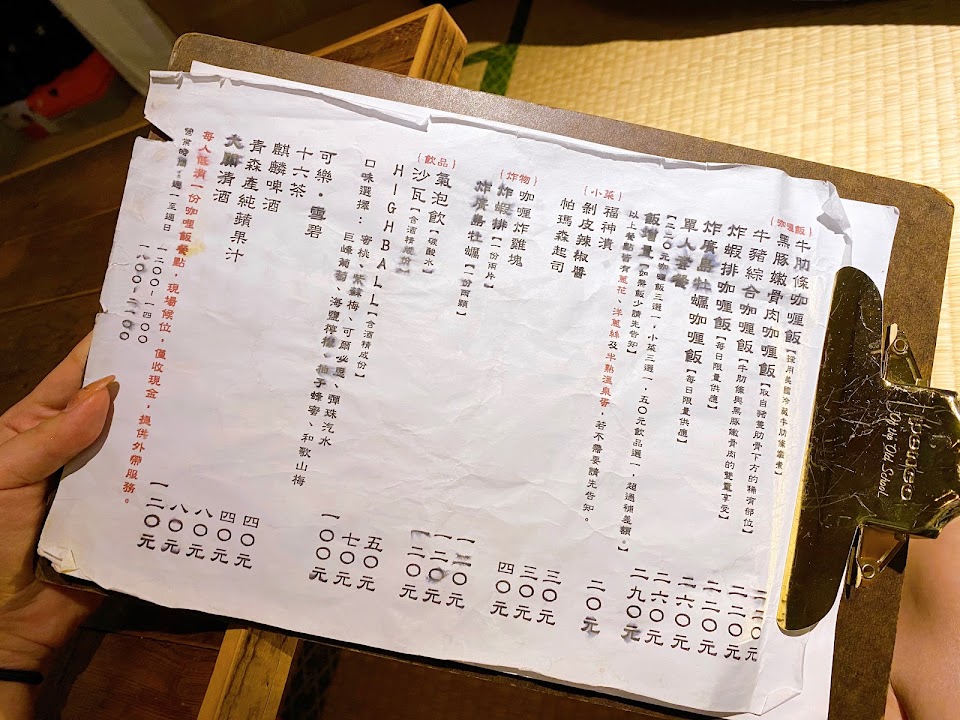 {咖喱飯}
牛肋條咖喱飯【採用美國冷藏牛肋條燉煮】 二二〇元
黑豚嫩骨肉咖喱飯【取自豬隻肋骨下方的稀有部位】 二二〇元
牛豬綜合咖喱飯【牛肋條與黑豚嫩骨肉的雙重享受】 二二〇元
炸蝦排咖喱飯【每日限量供應】 二六〇元
炸廣島牡蠣咖喱飯【每日限量供應】 二六〇元
單人套餐 二九〇元
【二二〇元咖喱飯三選一,小菜三選一,五〇元飲品選一,超過補差額。】
飯增量【如需飯少請先告知】 二〇元
以上餐點皆有蔥花、洋蔥絲及半熟溫泉蛋,若不需要請先告知。
{小菜}
福神漬 三〇元
剝皮辣椒醬 三〇元
帕瑪森起司 四〇元
{炸物}
咖喱炸雞塊 一二〇元
炸蝦排【一份兩片】 一二〇元
炸廣島牡蠣【一份兩顆】 一二〇元
{飲品}
氣泡飲【碳酸水】 五〇元
沙瓦【含酒精成份】 七〇元
HIGHBALL【含酒精成份】 一〇〇元
口味選擇:蜜桃、紫蘇梅、可爾必思、彈珠汽水
巨峰葡萄、海鹽檸檬、柚子蜂蜜、和歌山梅
可樂・雪碧 四〇元
十六茶 四〇元
麒麟啤酒 八〇元
青森產純蘋果汁 八〇元
大關清酒 一二〇元
每人低消一份咖喱飯餐點,現場候位,僅收現金,提供外帶服務。
營業時間:週一至週日 一二〇〇-一四〇〇
一八〇〇-二一〇〇